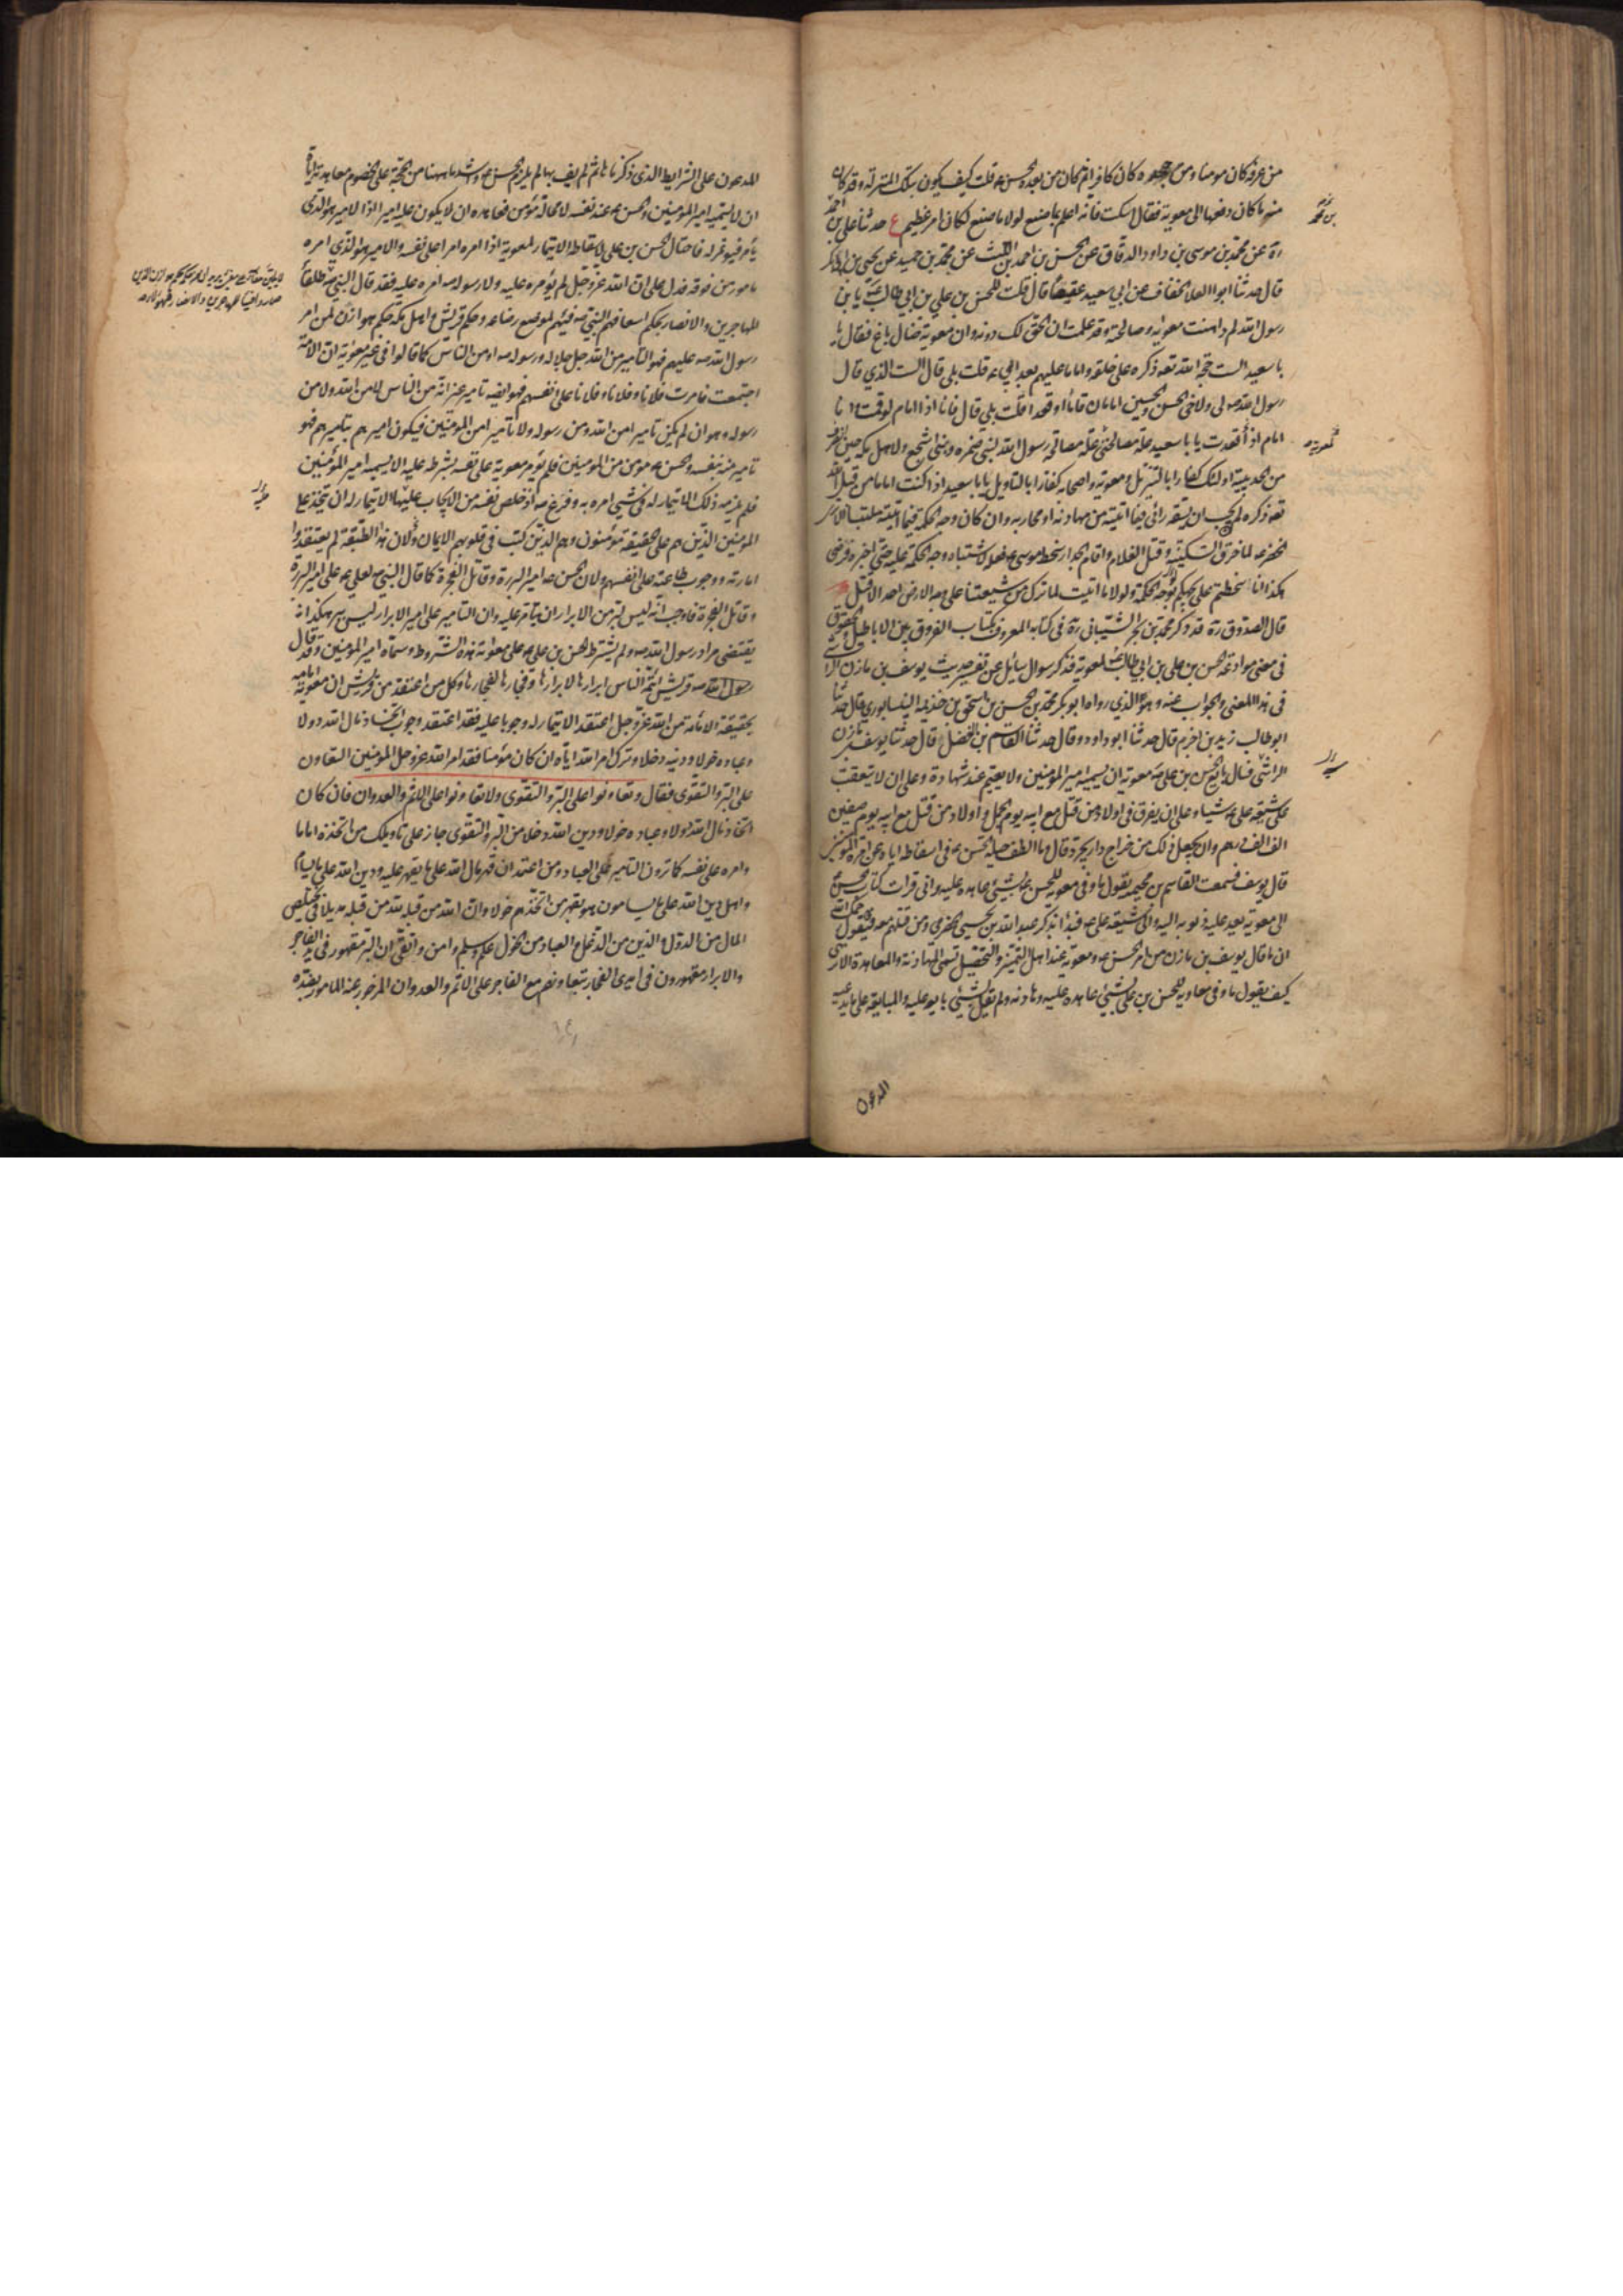 من عرفه كان مومنا ومن جحده كان كافرا ثم كان من بعده الحسن ع قلت كيف يكون بتلك المنزلة وقد كان
منه ما كان دفعها الى معوية فقال اسكت فانه اعلم بما صنع لولا ما صنع لكان امر عظيم ع حدثنا على بن احمد
بن محمد
ره عن محمد بن موسى بن داود الدقاق عن الحسن بن احمد بن الليث عن محمد بن حميد عن يحيى بن ابى بكر
قال حدثنا ابو العلا الخفاف عن ابي سعيد عقيصا قال قلت للحسن بن علي بن ابي طالب ع يا بن
رسول الله لم داهنت معوية وصالحته وقد علمت ان الحق لك دونه وان معوية ضال باغ فقال يا
با سعيد الست حجة الله تعه ذكره على خلقه واماما عليهم بعد ابي ع قلت بلى قال الست الذي قال
رسول الله صه لى ولاخى الحسن والحسين امامان قاما او قعدا قلت بلى قال فانا اذا امام لو قمت وانا
امام اذا قعدت يا با سعيد علة مصالحتى لمعوية علة مصالحة رسول الله لبنى ضمره وبنى اشجع ولاهل مكه حين انصرف
من الحديبية اولئك كفار بالتنزيل ومعوية واصحابه كفار بالتاويل يا با سعيد اذا كنت اماما من قبل الله
تعه ذكره لم يجب ان يسفه رائى فيما اتيته من مهادنه او محاربه وان كان وجه الحكمة فيما اتيته ملتبسا الا ترى
الخضر ع لما خرق السفينة وقتل الغلام واقام الجدار سخط موسى ع فعله لاشتباه وجه الحكمة عليه حتى اخبره فرضى
هكذا انا سخطتم على بجهلكم بوجه الحكمة ولولا ما اتيت لما ترك من شيعتنا على وجه الارض احد الا قتل
قال الصدوق ره قد ذكر محمد بن بحر الشيبانى ره فى كتابه المعروف بكتاب الفروق بين الاباطيل والحقوق
فى معنى موادعة الحسن بن على بن ابي طالب ع لمعوية فذكر سوال سائل عن تفسير حديث يوسف بن مازن الراسبى
فى هذا المعنى والجواب عنه وهو الذي رواه ابو بكر محمد بن الحسن بن اسحق بن خزيمه النيسابورى قال حدثنا
ابو طالب زيد بن اخزم قال حدثنا ابو داود وقال حدثنا القاسم بن الفضل قال حدثنا يوسف بن مازن
الراشى قال بايع الحسن بن على صه معوية ان لا يسميه امير المومنين ولا يقيم عنده شهادة وعلى ان لا يتعقب
على شيعة على ع شيئا وعلى ان يفرق فى اولاد من قتل مع ابيه يوم الجمل واولاد من قتل مع ابيه يوم صفين
الف الف درهم وان يجعل ذلك من خراج دارابجرد قال وما الطف حيلة الحسن ع فى اسقاطه اياه عن امرة المومنين
قال يوسف فسمعت القاسم بن محيمه يقول ما وفى معويه للحسن بن على بشيئ عاهده عليه وانى قرات كتاب الحسن ع
الى معوية يعد عليه ذنوبه اليه والى شيعة على ع فبدا بذكر عبد الله بن يحيى الحضرمى ومن قتلهم معه فنقول رحمك الله
ان ما قال يوسف بن مازن من امر الحسن ع ومعوية عند اهل التميز والتحصيل تسمى المهادنة والمعاهدة الا ترى
كيف يقول ما وفى معاويه للحسن بن على بشيئ عاهده عليه وهادنه ولم يقل بشيئ بايعه عليه والمبايعة على ما يدعيه
المدعون
المدعون على الشرايط الذى ذكرناها ثم لم يف بها لم يلزم الحسن ع واشد ما ههنا من الحجة على الخصوم معاهدته اياه
ان لا يسميه امير المؤمنين والحسن ع عند نفسه لا محالة مؤمن فعاهده ان لا يكون عليه امير اذا الامير هو الذى
يأمر فيؤتمر له فاحتال الحسن بن على ع لاسقاط الايتمار لمعوية اذا امره امرا على نفسه والامير هو الذى امره
مامور من فوقه فدل على ان الله عز وجل لم يؤمره عليه ولا رسوله صه امره عليه فقد قال النبى صه
المهاجرين والانصار بحكم اسعافهم النبى صه فيئهم لموضع رضاعه وحكم قريش واهل مكه حكم هوازن لمن امر
رسول الله صه عليهم فهو التامير من الله جل جلاله ورسوله صه او من الناس كما قالوا فى غير معوية ان الامة
اجتمعت فامرت فلانا وفلانا وفلانا على انفسهم فهو ايضه تامير غير انه من الناس لا من الله ولا من
رسوله وهو ان لم يكن تاميرا من الله ومن رسوله ولا تاميرا من المومنين فيكون اميرهم بتاميرهم فهو
تامير منه بنفسه والحسن ع مؤمن من المومنين فلم يؤمر معوية على نفسه بشرطه عليه الا يسميه امير المؤمنين
فلم يلزمه ذلك الايتمار له فى شيئ امره به وفرغ صه اذ خلص نفسه من الايجاب عليها الايتمار له ان يتخذ على
المومنين الذين هم على الحقيقه مؤمنون وهم الذين كتب فى قلوبهم الايمان ولان هذه الطبقه لم يعتقدوا
امارته ووجوب طاعته على انفسهم ولان الحسن ع امير البررة وقاتل الفجرة كما قال النبى ص لعلى ع على امير البررة
وقاتل الفجرة فاوجب انه ليس لبر من الابرار ان يتامر عليه وان التامير على امير الابرار ليس ببر هكذا انه
يقتضى مراد رسول الله صه ولم يشترط الحسن بن على ع على معوية هذه الشروط وسماه امير المومنين وقد قال
رسول الله صه قريش ائمة الناس ابرارها لابرارها وفجارها لفجارها وكل من اعتقد من قريش ان معوية امامه
بحقيقة الامامة من الله عز وجل اعتقد الايتمار له وجوبا عليه فقد اعتقد وجوب اتخاذ مال الله دولا
وعباده خولا ودينه دخلا وترك امر الله اياه ان كان مؤمنا فقد امر الله عز وجل المومنين التعاون
على البر والتقوى فقال وتعاونوا على البر والتقوى ولا تعاونوا على الاثم والعدوان فان كان
اتخاذ مال الله دولا وعباده خولا ودين الله دخلا من البر والتقوى جاز على تاويلك من اتخذه اماما
وامره على نفسه كما ترون التامير على العباد ومن اعتقد ان قهر مال الله على ما يقهر عليه ودين الله على ما يسام
واهل دين الله على ما يسامون هو بقهر من اتخذهم خولا وان الله من قبله مديلا فى تخليص
المال من الدول والدين من الدغل والعباد من الخول علم وسلم وامن واتقى ان البر مقهور فى يد الفاجر
والابرار مقهورون فى ايدى الفجار بتعاونهم مع الفاجر على الاثم والعدوان المزجور عنه المامور بضده